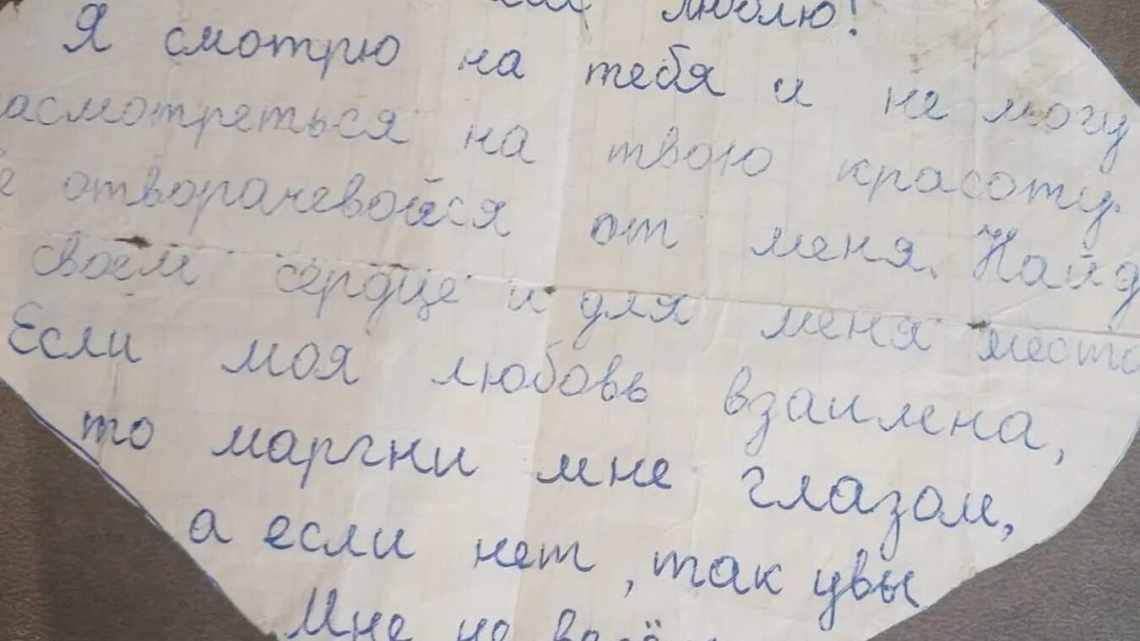 люблю!
Я смотрю на тебя и не могу
асмотреться на твою красоту.
е отворачевойся от меня. Найд
своем сердце и для меня место
Если моя любовь взаимена,
то маргни мне глазом,
а если нет, так увы
Мне не